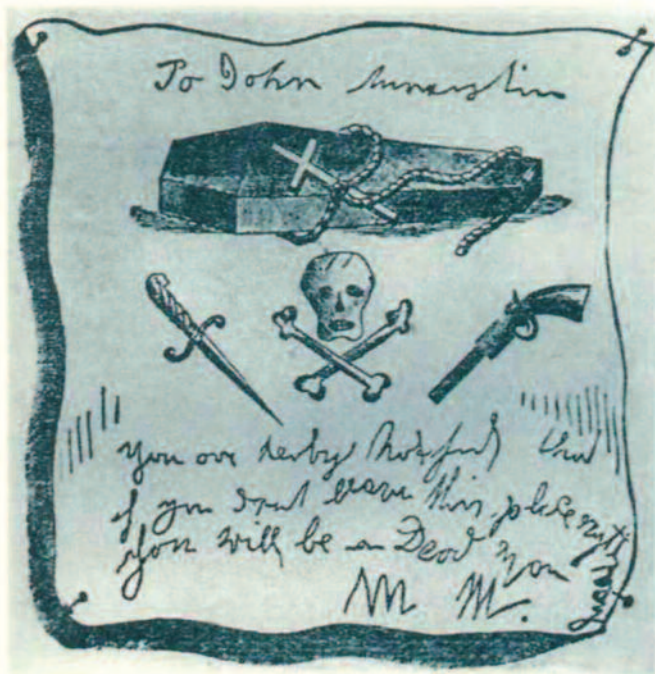 To John
you are herby that
if you dont leave this place
you will be a Dead man
M M.